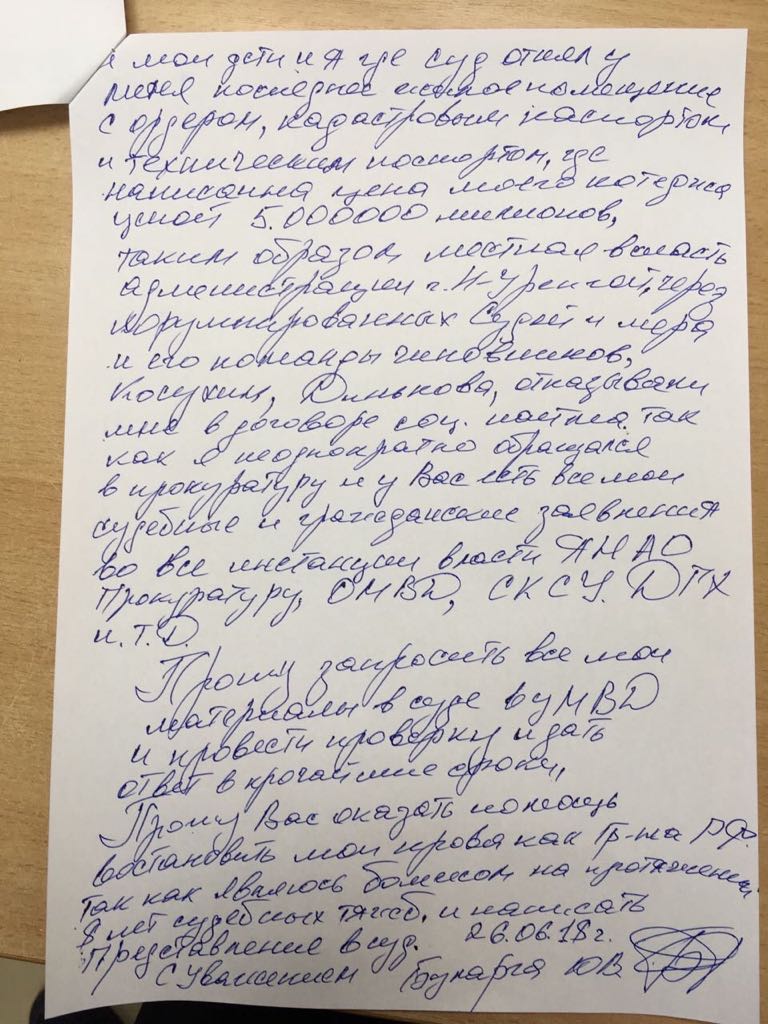 и мои дети и я где суд отнял у
меня последнее жилое помещение
с ордером, кадастровым паспортом
и техническим паспортом, где
написанна цена моего котеджа
ценой 5.000000 милионов,
таким образом местная власть
администрации г. Н-Уренгой, через
коррумпированных Судей и мера
и его команды чиновников,
Косухин, отказывали
мне в договоре соц. найма. Так
как я неоднократно обращался
в прокуратуру и у Вас есть все мои
судебные и гражданские заявления
во все инстанции власти ЯНАО
Прокуратуру, ОМВД, СКСУ. ДПХ
и.т.д.
Прошу запросить все мои
материалы в суде в УМВД
и провести проверку и дать
ответ в крочайшие сроки,
Прошу Вас оказать помощь
востановить мои права как Гр-на РФ.
так как являюсь бомжом на протяжении
8 лет судебных тяжб. и написать
Представление в суд. 26.06.18г.
С Уважением Ю.В.